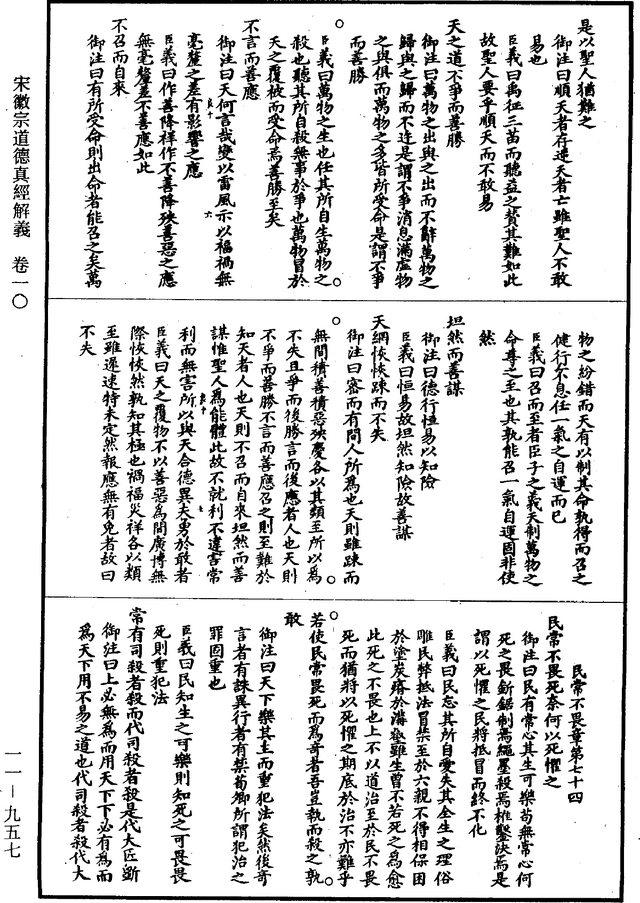 宋徽宗道德真經解義　卷一〇
是以聖人猶難之
御注曰順天者存逆天者亡雖聖人不敢
易也
臣義曰禹征三苗而聽益之贊其難如此
故聖人要乎順天而不敢易
天之道不爭而善勝
御注曰萬物之出與之出而不辭萬物之
歸與之歸而不迕是謂不爭消息滿虛物
之與俱而萬物之多皆所受命是謂不爭
而善勝
臣義曰萬物之生也任其所自生萬物之
殺也聽其所自殺無事於爭也萬物冒於
天之覆被而受命焉善勝至矣
不言而善應
御注曰天何言哉變以雷風示以禍福無
毫釐之差有影響之應
臣義曰作善降祥作不善降殃善惡之應
無毫釐差不善應如此
不召而自來
御注曰有所受命則出命者能召之矣萬
物之紛錯而天有以制其命孰得而召之
健行不息任一氣之自運而已
臣義曰召而至者臣子之義天制萬物之
命尊之至也其孰能召一氣自運固非使
然
坦然而善謀
御注曰德行恒易以知險
臣義曰恒易故坦然知險故善謀
天網恢恢踈而不失
御注曰密而有間人所為也天則雖踈而
無間積善積惡殃慶各以其類至所以為
不失且爭而後勝言而後應者人也天則
不爭而善勝不言而善應召之則至難於
知天者人也天則不召而自來坦然而善
謀惟聖人為能體此故不就利不違害常
利而無害所以與天合德異夫勇於敢者
臣義曰天之覆物不以善惡為間廣博無
際恢恢然孰知其極也禍福災祥各以類
至雖遲速特未定然報應無有免者故曰
不失
民常不畏章第七十四
民常不畏死奈何以死懼之
御注曰民有常心其生可樂苟無常心何
死之畏釿鋸制焉繩墨殺焉椎鑿決焉是
謂以死懼之民將抵冒而終不化
臣義曰民忘其所自愛失其全生之理俗
雕民弊抵法冒禁至於六親不得相保困
於塗炭瘠於溝壑雖生曾不若死之為愈
此死之不畏也上不以道治至於民不畏
死而猶將以死懼之期底於治不亦難乎
若使民常畏死而為奇者吾豈執而殺之孰
敢
御注曰天下樂其生而重犯法矣然後奇
言者有誅異行者有禁荀卿所謂犯治之
罪固重也
臣義曰民知生之可樂則知死之可畏畏
死則重犯法
常有司殺者殺而代司殺者殺是代大匠斲
御注曰上必無為而用天下下必有為而
為天下用不易之道也代司殺者殺代大
一一—九五七